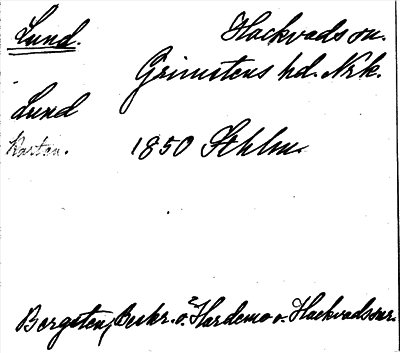 Lund. Hackvads sn.
Grimstens hd. Nrk.
Lund
Kartan. 1850 Sthlm.
Bergsten, Beskr. ö. Hardemo o. Hackvads snr.